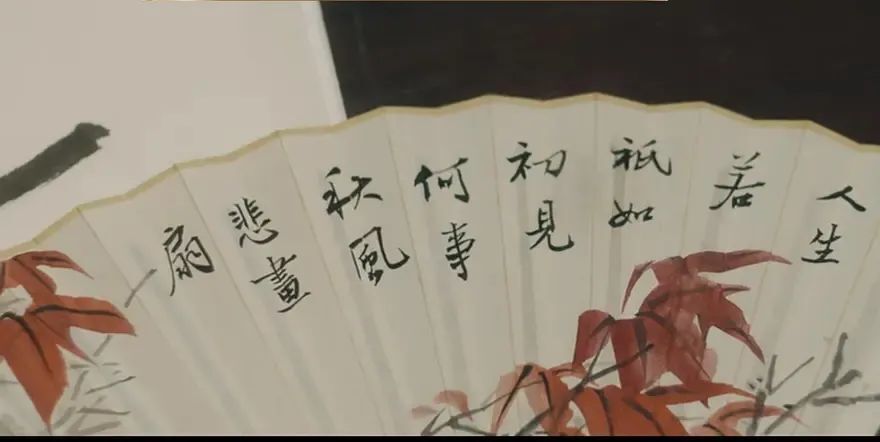 人生
若
祇如
初見
何事
秋風
悲畫
扇